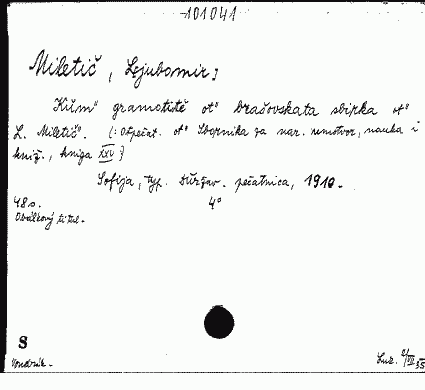 101041
Miletič, Ljubomir:
Kŭmʺ gramotitě otʺ brašovskata sbirka otʺ
L. Miletičʺ. (: Otpečat. otʺ Sbornika za nar. umotvor., nauka i
kniž., kniga XXV :)
Sofija, typ. Dŭržav. pečatnica, 1910.
48 s. 4°
Obálkový titul.
S
Vondrák. Luz. 2/VII 35